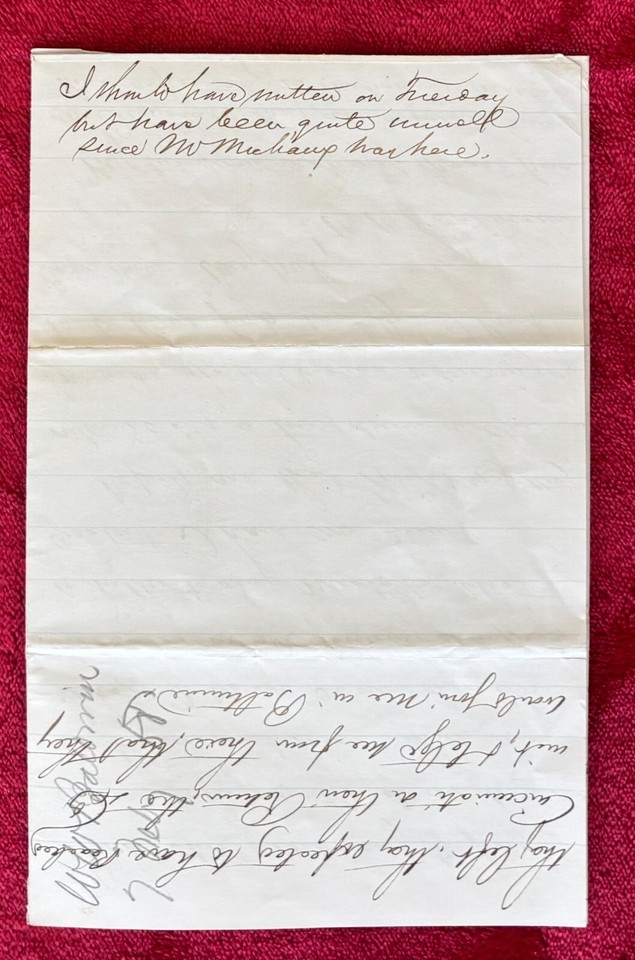 I should have written on Tuesday
but have been quite unwell
since Mr Michaux was here.
they left. they expected to have reached
Cincinnati on their Return, the
me from there, that they
would join me in Baltimore